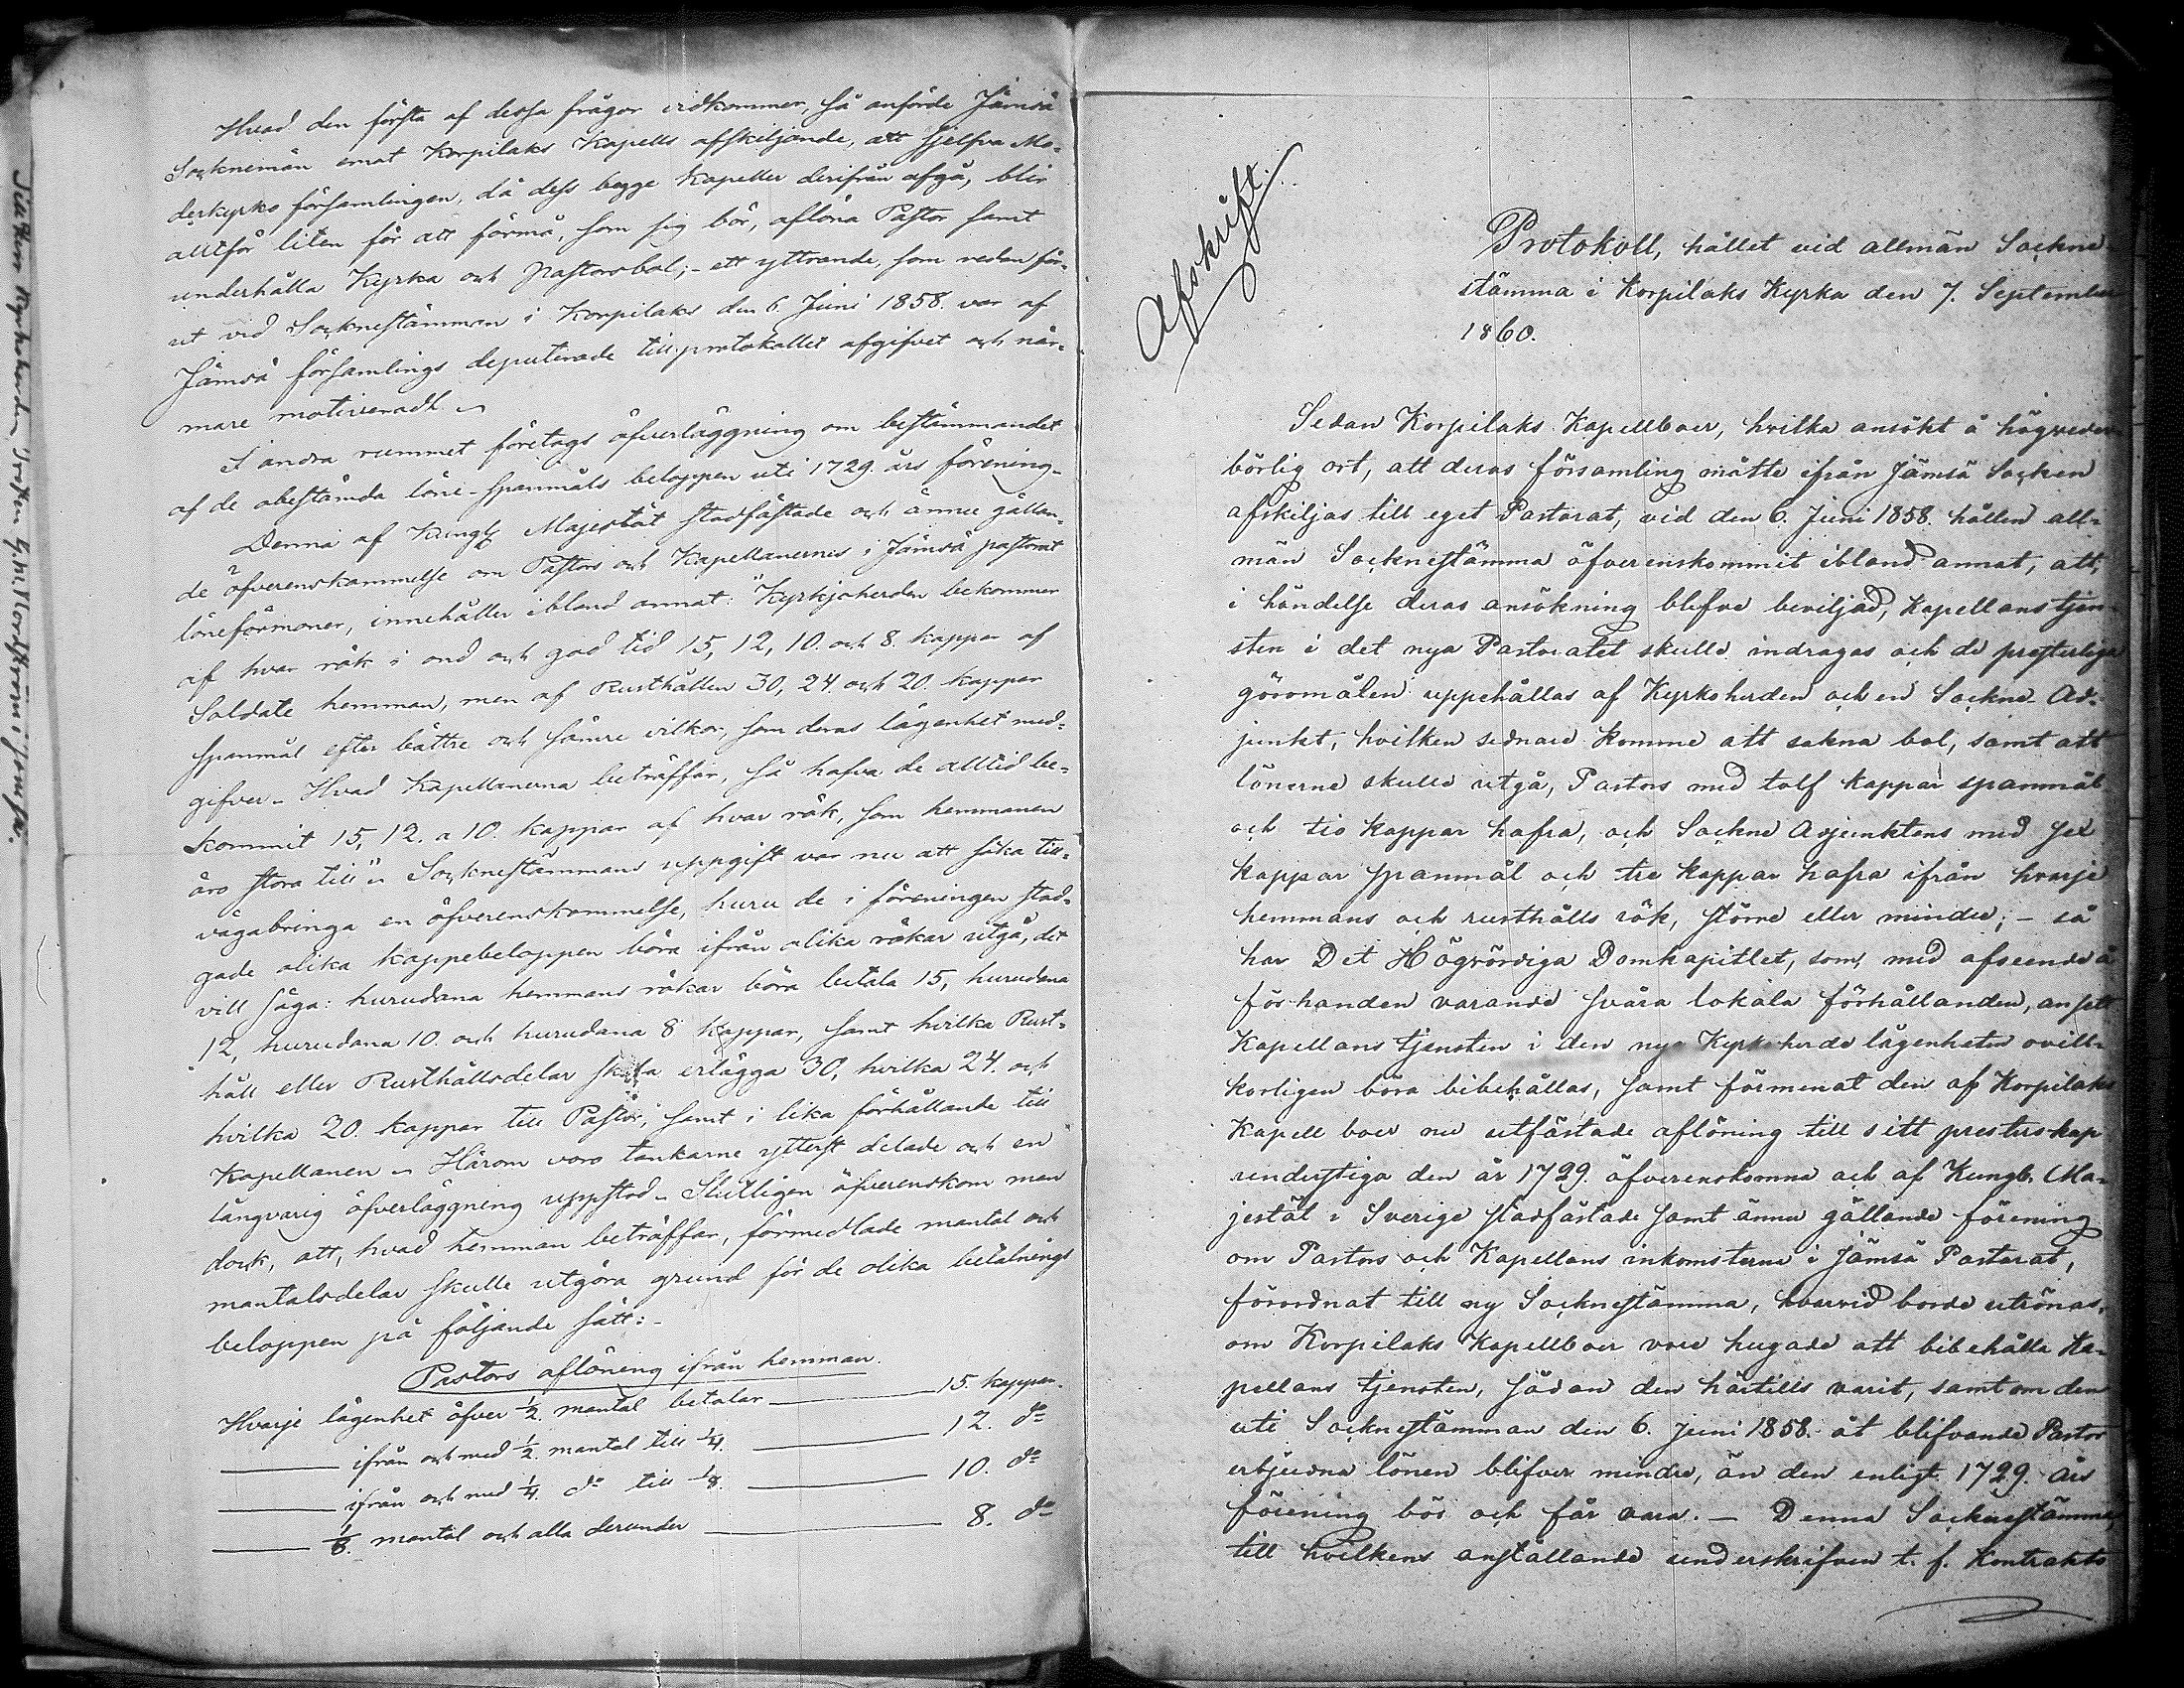 Hvad den första af dessa frågor vidkommer, så anförde Jämsä
Socknemän emot Korpilaks Kapells afskiljande, att sjelfva Mo-
derkyrko församlingen, då dess begge Kapeller derifrån afgå, blir
alltför liten för att förmå, som sig bör, aflöna Pastor samt
underhålla Kyrka och Pastorsbol; - ett yttrande, som redan för-
ut vid Socknestämman i Korpilaks den 6. Juni 1858. var af
Jämsä församlings deputerade till protokollet afgifvet och när-
mare motiveradt. -
I andra rummet företogs öfverläggning om bestämmandet
af de obestämda löne-spanmåls beloppen uti 1729. års förening -
Denna af Kungl. Majestät stadfästade och ännu gällan-
de öfverenskommelse om Pastors och Kapellanernes i Jämsä pastorat
löneförmoner, innehåller ibland annat: "Kyrkjoherden bekommer
af hvar rök i ond och god tid 15, 12, 10. och 8. kappar af
Soldate hemman, men af Rusthållen 30, 24. och 20. kappar
spanmål efter bättre och sämre vilkor, som deras lägenhet med-
gifver. - Hvad Kapellanerna beträffar, så hafva de alltid be-
kommit 15, 12. a 10. kappar af hvar rök, som hemmanen
äro stora till". - Socknestämmans uppgift var nu att söka till-
vägabringa en öfverenskommelse, huru de i föreningen stad-
gade olika kappebeloppen böra ifrån olika rökar utgå, det
vill säga: hurudana hemmans rökar böra betala 15, hurudana
12, hurudana 10. och hurudana 8 kappar, samt hvilka Rust-
håll eller Rusthållsdelar skola erlägga 30, hvilka 24. och
hvilka 20. kappar till Pastor, samt i lika förhållande till
Kapellanen. - Härom voro tankarne ytterst delade och en
långvarig öfverläggning uppstod. - Slutligen öfverenskom man
dock, att, hvad hemman beträffar, förmedlade mantal och
mantalsdelar skulle utgöra grund för de olika betalnings
beloppen på följande sätt: -
Pastors aflöning ifrån hemman.
Hvarje lägenhet öfver ½. mantal betalar 15. kappar.
ifrån och med ½. mantal till ¼. 12. do
ifrån och med ¼. do till ⅛. 10. do
⅛. mantal och alla derunder 8. do
Afskrift.
Protokoll, hållet vid allmän Sockne
stämma i Korpilaks Kyrka den 7. September
1860.
Sedan Korpilaks Kapellboer, hvilka ansökt å högveder-
börlig ort, att deras församling måtte ifrån Jämsä Socken
afskiljas till eget Pastorat, vid den 6. Juni 1858. hållen all-
män Socknestämma öfverenskommit ibland annat, att,
i händelse deras ansökning blefve beviljad, Kapellanstjen-
sten i det nya Pastoratet skulle indragas och de presterliga
göromålen uppehållas af Kyrkoherden och en Sockne-Ad-
junkt, hvilken sednare komme att sakna bol, samt att
lönerne skulle utgå, Pastors med tolf kappar spanmål
och tio kappar hafra, och Sockne Adjunktens med sex
kappar spanmål och tre kappar hafra ifrån hvarje
hemmans och rusthålls rök, större eller mindre; - så
har Det Högvördiga Domkapitlet, som, med afseende å
för handen varande svåra lokala förhållanden, ansett
Kapellans tjensten i den nya Kyrkoherde lägenheten ovill-
korligen böra bibehållas, samt förmenat den af Korpilaks
Kapell boer nu utfästade aflöning till sitt presterskap
understiga den år 1729. öfverenskomna och af Kungl. Ma-
jestät i Sverige stadfästade samt ännu gällande förening
om Pastors och Kapellans inkomsterna i Jämsä Pastorat,
förordnat till ny Socknestämma, hvarvid borde utrönas,
om Korpilaks Kapellboer vore hugade att bibehålla Ka-
pellans tjensten, sådan den härtills varit, samt om den
uti Socknestämman den 6. Juni 1858. åt blifvande Pastor
erbjudna lönen blifver mindre, än den enligt 1729. års
förening bör och får vara. - Denna Socknestämma,
till hvilkens anställande underskrifven t. f. Kontrakts